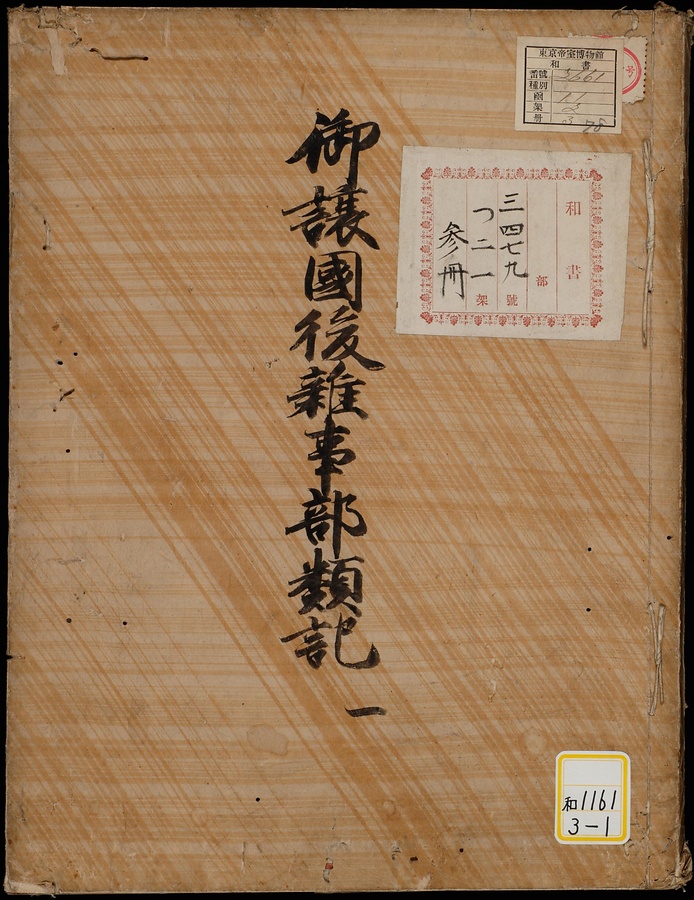 御譲國後雜事部類記 一
東京帝室博物館
和書
番號 3661
種別
函
架
册 3
和書
部
三四七九號
つ二一架
参冊
和1161
3-1
号